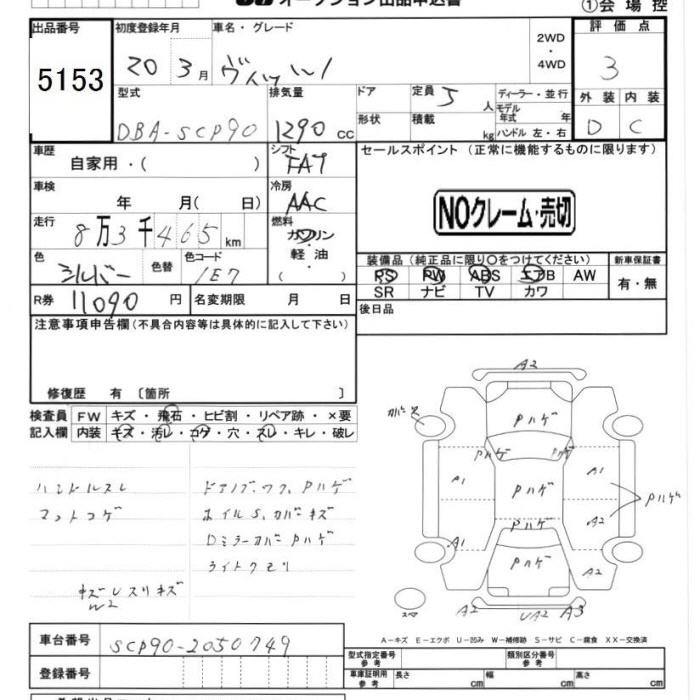 オークション出品申込書
①会場控
出品番号
5153
初度登録年月
20 3月
車名・グレード
ヴィッツ
2WD
・
4WD
評価点
3
型式
DBA-SCP90
排気量
1290 cc
ドア
形状
定員 5 人
積載 kg
ディーラー・並行
モデル年式 年
ハンドル 左・右
外装 内装
D C
車歴
自家用・( )
シフト
FAT
セールスポイント (正常に機能するものに限ります)
NOクレーム・売切
車検
年 月( 日)
冷房
AAC
走行
8万3千465km
燃料
ガソリン
・
軽油
・
( )
色
シルバー
色替
色コード
1E7
装備品 (純正品に限り○をつけてください)
PS PW ABS エアB AW
SR ナビ TV カワ
新車保証書
有・無
R券 11090 円
名変期限 月 日
後日品
注意事項申告欄(不具合内容等は具体的に記入して下さい)
修復歴 有 〔箇所 〕
検査員記入欄
FW キズ・飛石・ヒビ割・リペア跡・×要
内装 キズ・汚レ・コゲ・穴・スレ・キレ・破レ
ハンドルスレ
マットコゲ
ドアノブ、ワク、Pハゲ
ホイルS、カバーキズ
Dミラーカバー Pハゲ
ライトクモリ
A2
カバーキズ
Pハゲ
Pハゲ
Pハゲ
A1
Pハゲ
A1
A2
Pハゲ
A1
Pハゲ
Pハゲ
A2
スペア
A2
UA2
A3
A-キズ E-エクボ U-凹み W-補修跡 S-サビ C-腐食 XX-交換済
車台番号
SCP90-2050749
登録番号
型式指定番号 参考
類別区分番号 参考
車庫証明用 参考
長さ cm 幅 cm 高さ cm